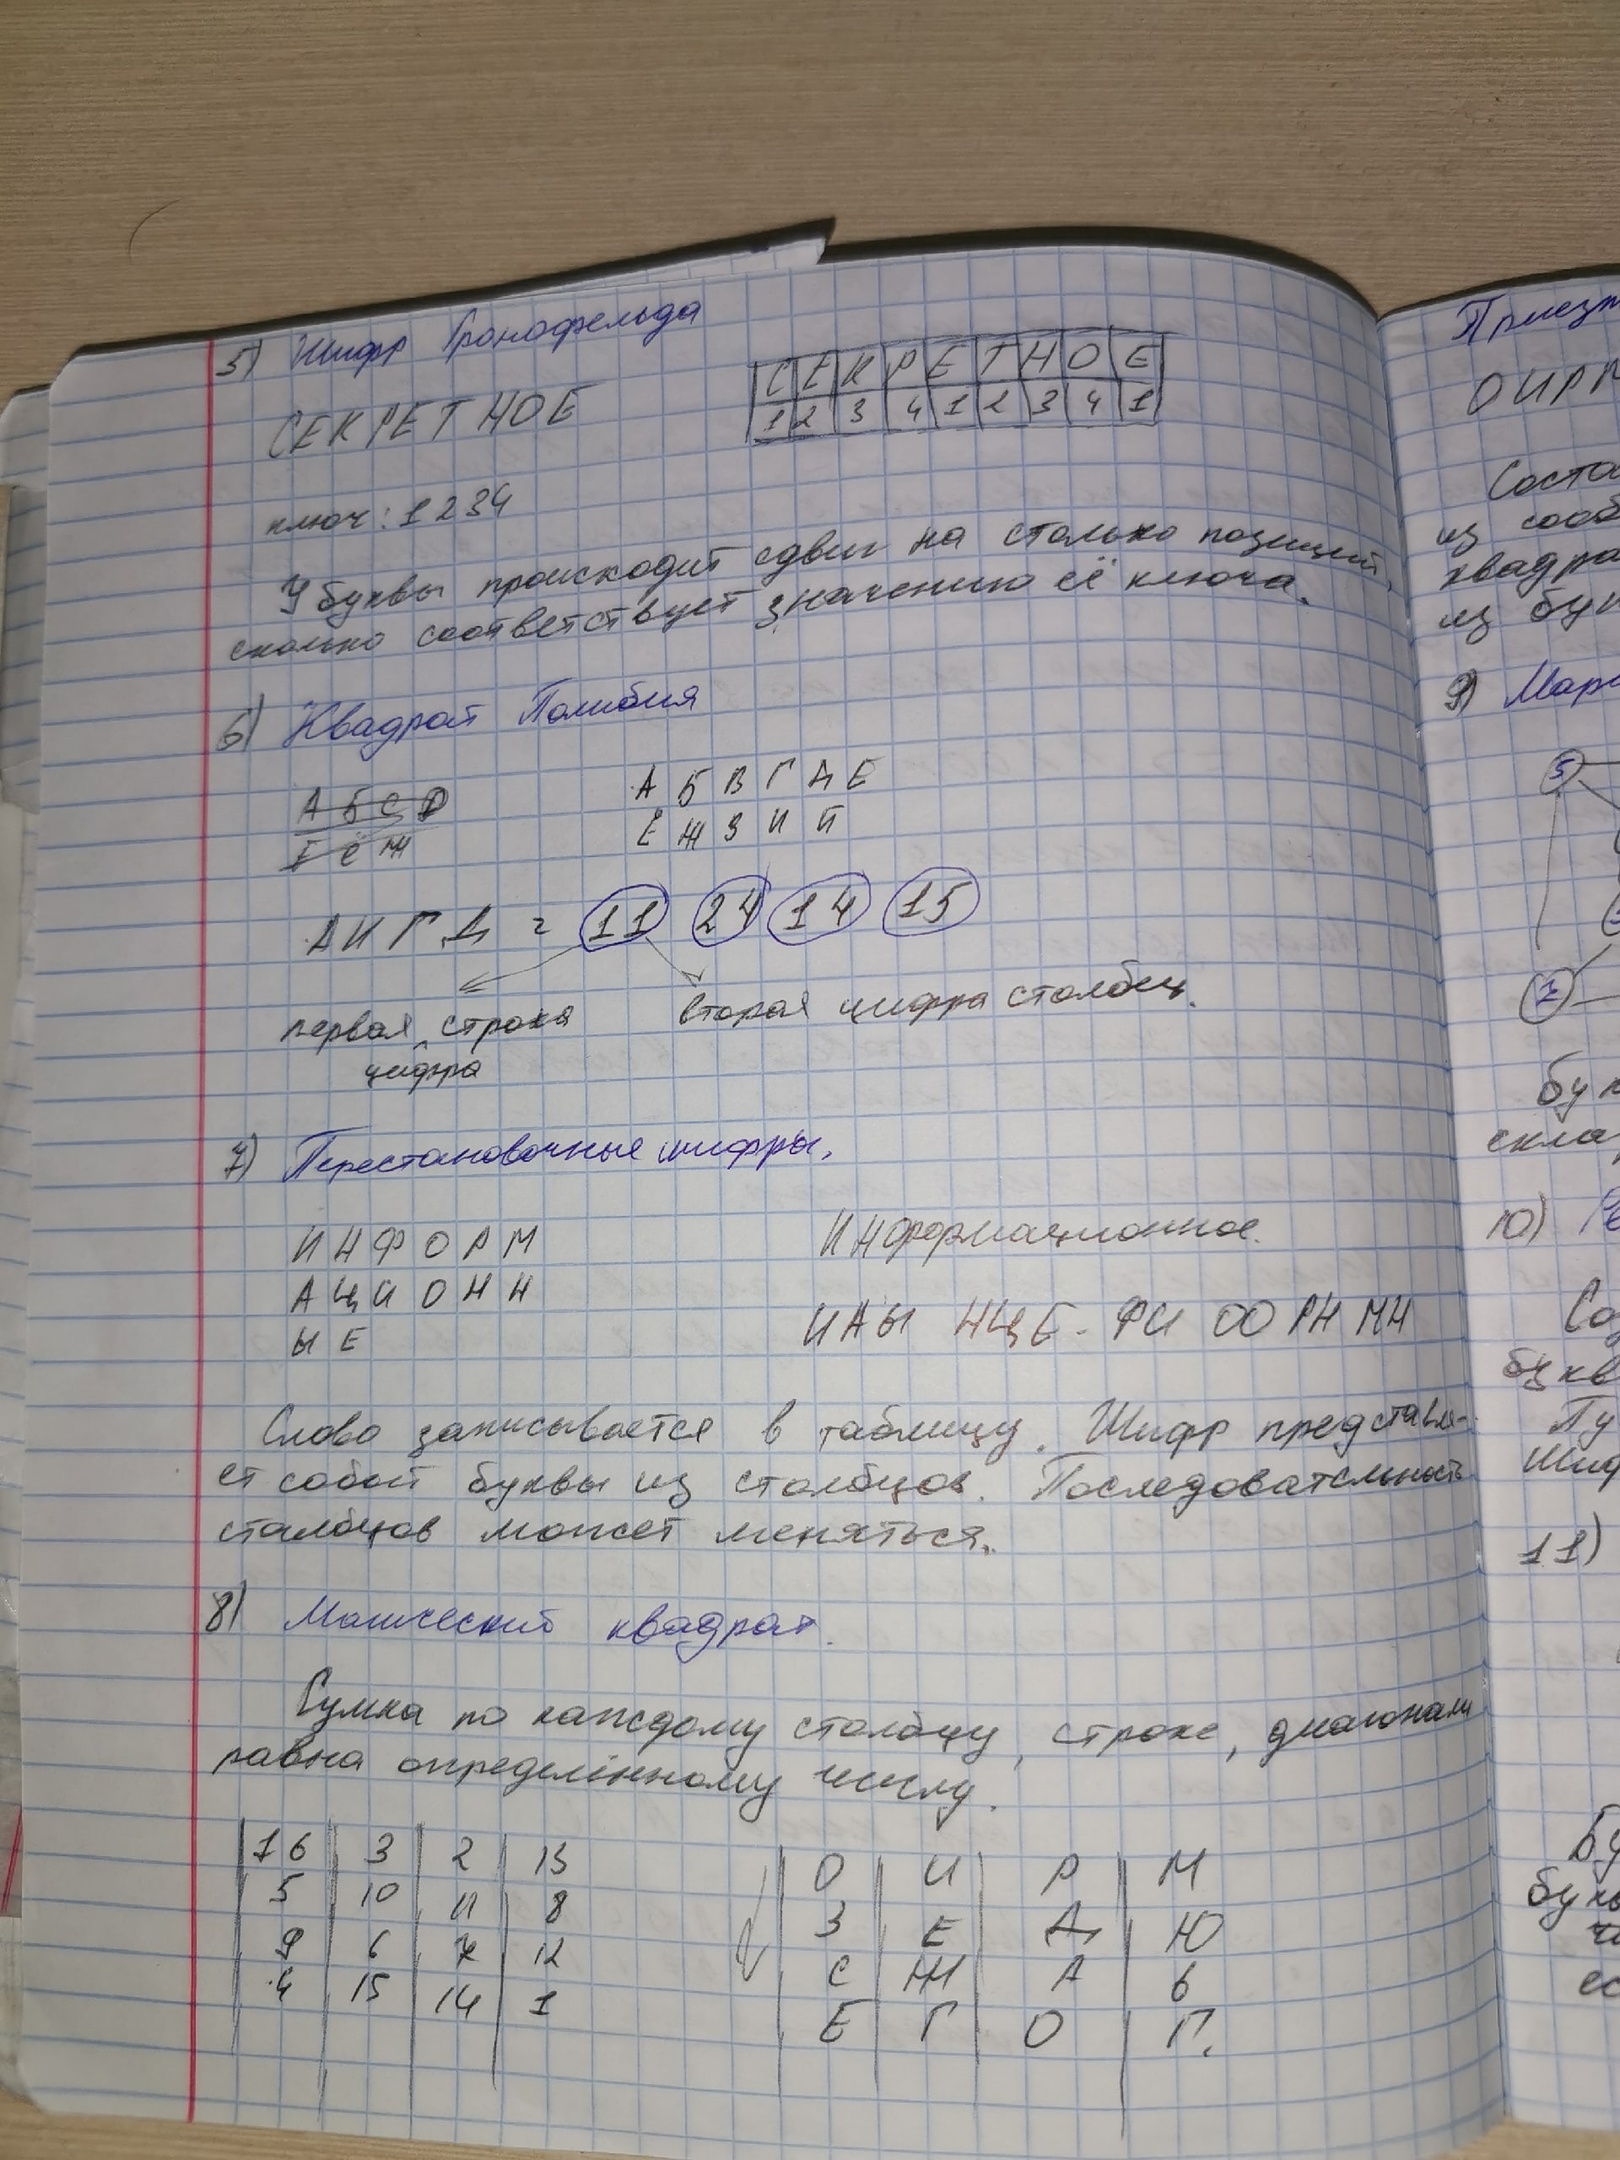 5) Шифр Гронсфельда
С Е К Р Е Т Н О Е
1 2 3 4 1 2 3 4 1
СЕКРЕТНОЕ
ключ: 1234
У буквы происходит сдвиг на столько позиций,
сколько соответствует значению её ключа.
6) Квадрат Полибия
А Б С D
Е Ё Ж
А Б В Г Д Е
Ё Ж З И Й
АИГД = 11 24 14 15
первая цифра строка вторая цифра столбец.
7) Перестановочные шифры.
И Н Ф О Р М
А Ц И О Н Н
Ы Е
Информационное.
ИАЫ НЦЕ. ФИ ОО РН МН
Слово записывается в таблицу. Шифр представля-
ет собой буквы из столбцов. Последовательность
столбцов может меняться.
8) Магический квадрат.
Сумма по каждому столбцу, строке, диагонали
равна определённому числу.
16 3 2 13
5 10 11 8
9 6 7 12
4 15 14 1
О И Р М
З Е Д Ю
С Ж А Ь
Е Г О Г.
ОИРМ
9)
5
1
10)
11)